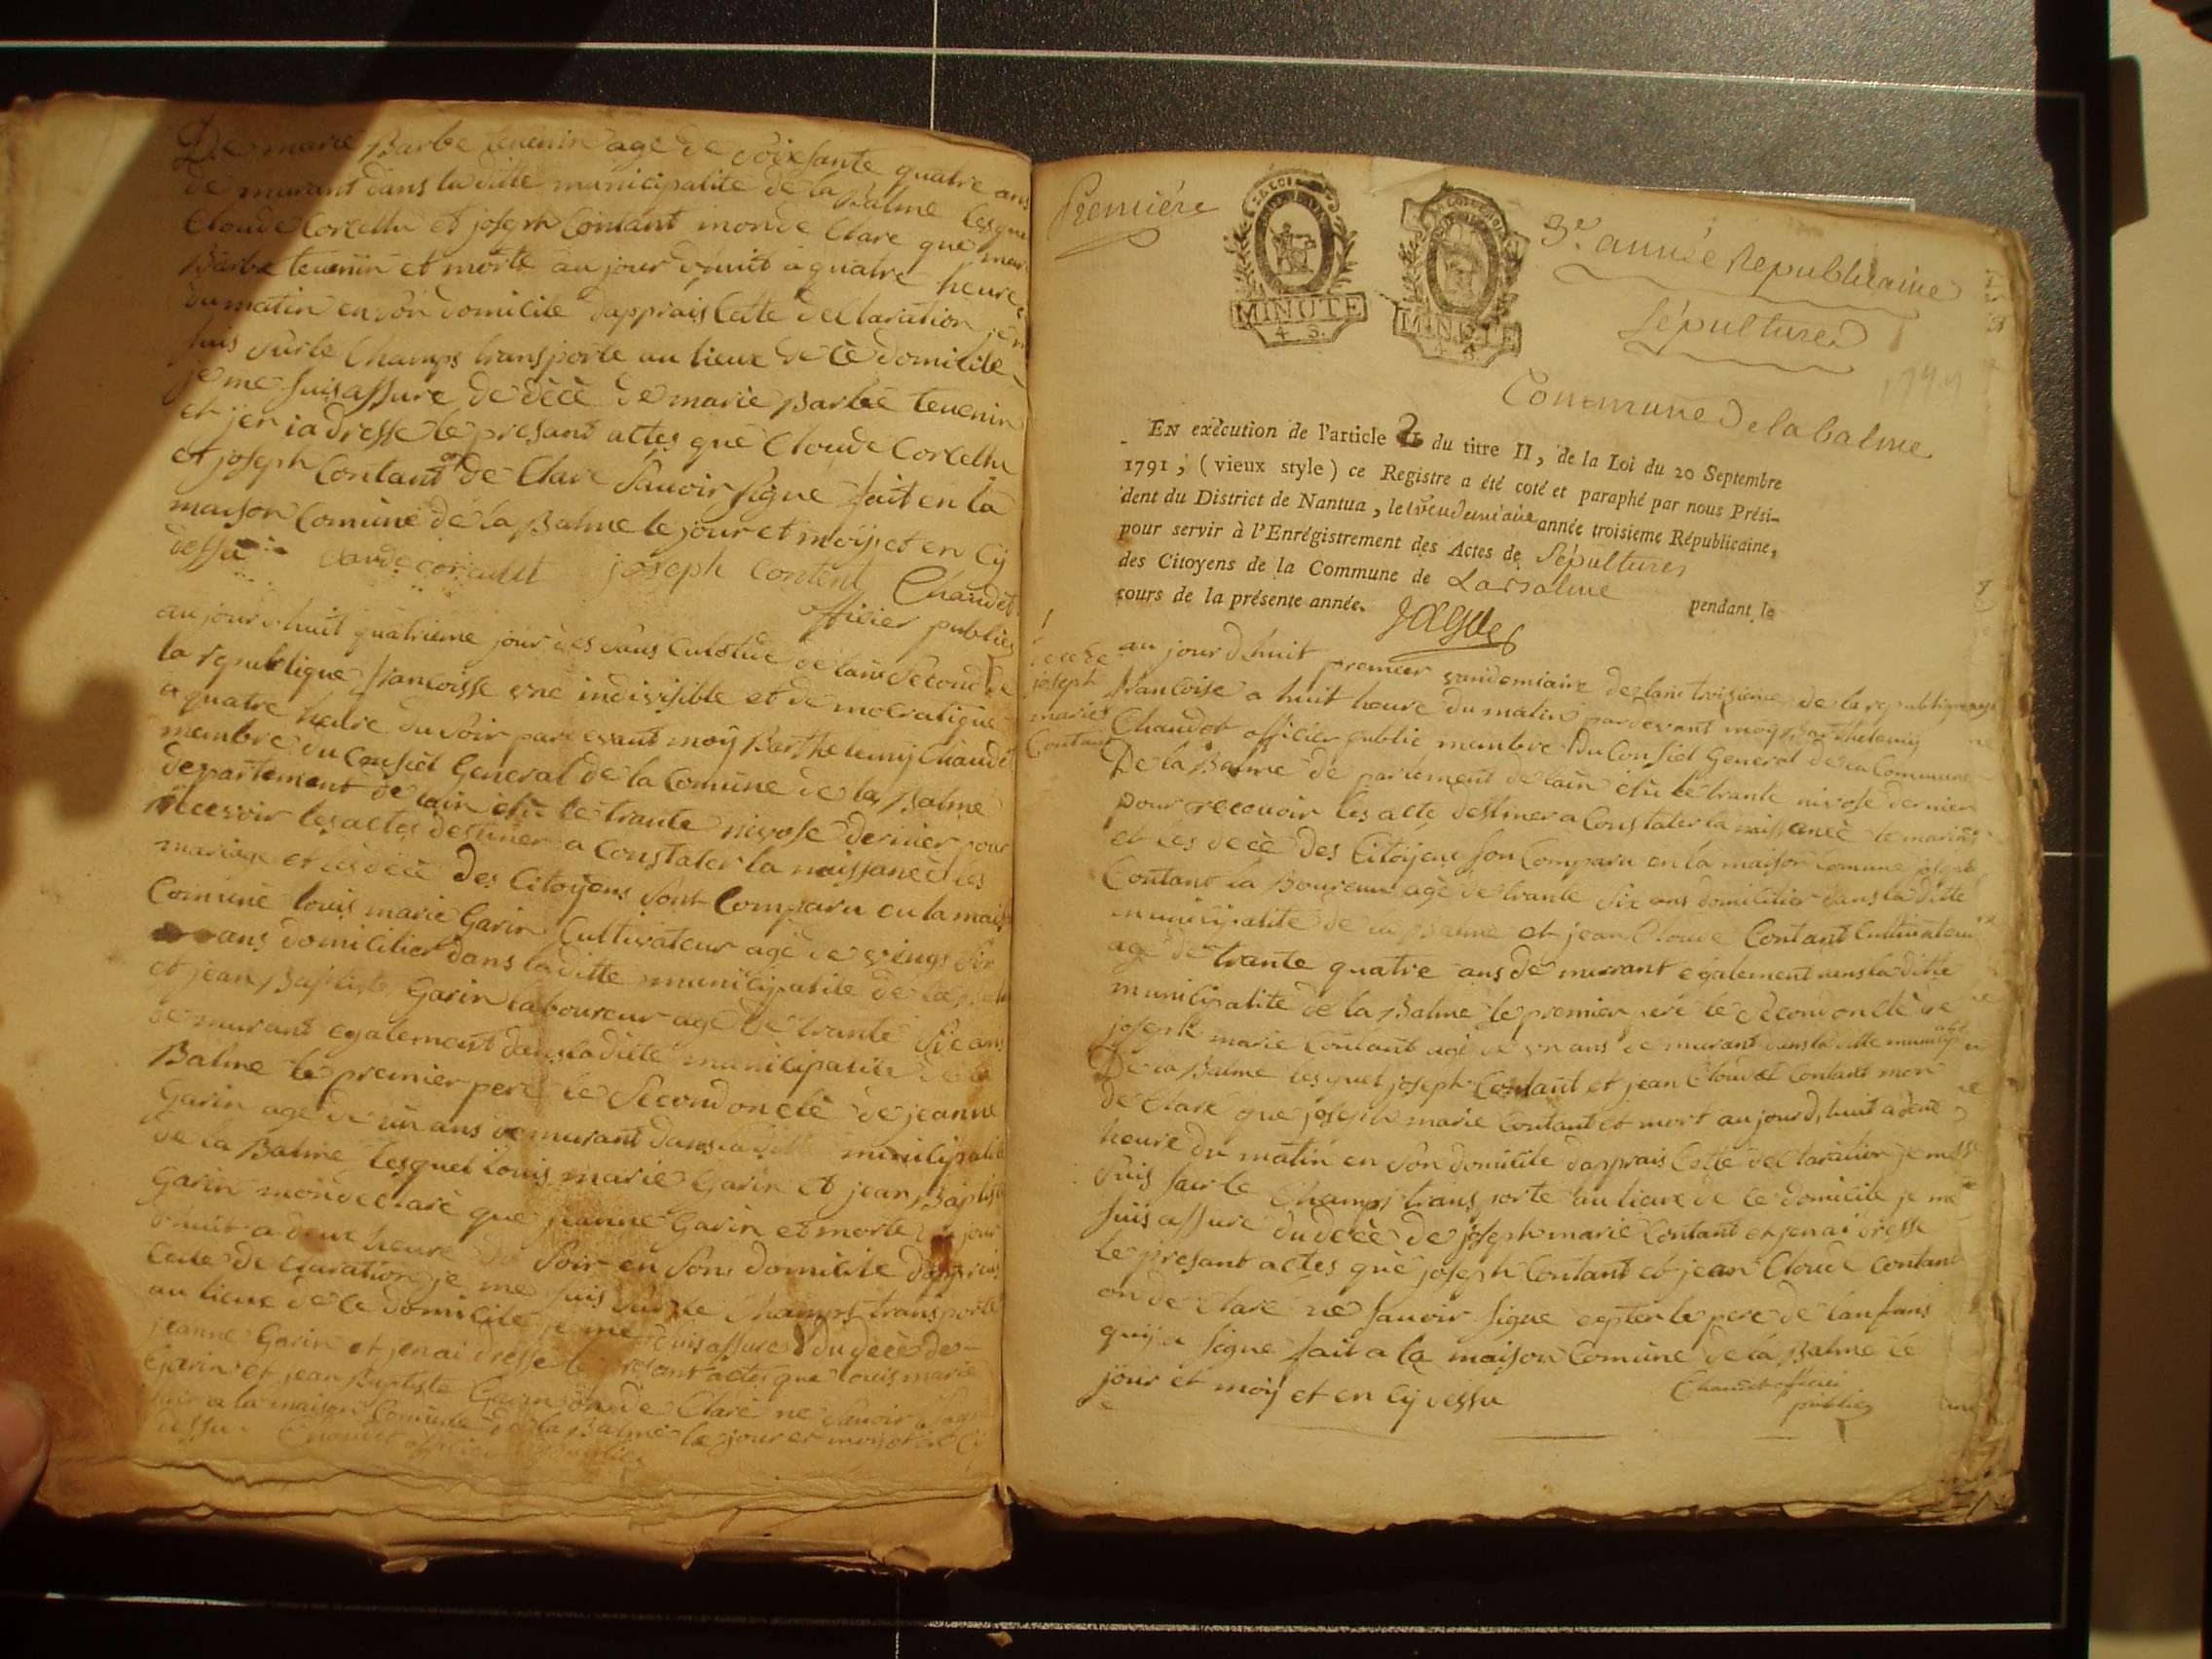 De marie Barbe tevenin age de soixsante quatre ans
de murant dans la ditte municipalite de la Balme lesque
Cloude Corcellu et joseph Contant monde Clare que mari
Barbe tevenin et morte au jour dhuit a quatre heure
du matin en son domicile dapprais Cette declaration je m
suis sur le Champs transporte au lieux de ce domicile
je me suis assure de décè de marie Barbe tevenin
et jen ia dresse le presant actes que Cloude Corcellu
et joseph Contant on de Clare Savoir signe fait en la
maison Comune de la Balme le jour et moij et en Cij
dessu joseph content Chaudet
officier publics
au jour dhuit quatrieme jour des sans Culotide de lans Second de
la republique francoisse une indivisible et de mocratique
a quatre heure du Soir par devant moij Barthelemij Chaudet
membre du Consiel General de la Comune de la Balme
departement de lain élu le trante nivose dernier pour
recevoir les actes destiner a Constater la naissance les
mariage et les décè des Citoijens sont Comparu en la mais
Comune louis marie Garin Cultivateur age de vings six
ans domicilier dans la ditte municipalite de la Bal
et jean Baptiste Garin laboureur age de trante six ans
de murant egalement dans la ditte municipalite de la
Balme le premier pere le Second oncle de jeanne
Garin age de un ans demurant dans la ditte municipalite
de la Balme lesquel louis marie Garin et jean Baptist
Garin monde clare que jeanne Garin et morte au jour
dhuit a deux heure du Soir en Son domicile dapprais
Cette de claration je me suis sur le Champs transporte
au lieux de ce domicile je me suis assure du décè de
jeanne Garin et jen ai dresse le presant actes que louis marie
Garin et jean Baptiste Garin on de Clare ne Savoir Signe
fait a la maison Comune de la Balme le jour et moij et en Cij
dessu Chaudet officier Publics
Premiére
LA LOI
MINUTE
4 S.
MINUTE
4 S.
3e année Republicaine
Sépultures
1794
Commune de la balme
EN exécution de l'article 2 du titre II, de la Loi du 20 Septembre
1791, (vieux style) ce Registre a été coté et paraphé par nous Prési-
dent du District de Nantua, le 1er vendemiaire année troisieme Républicaine,
pour servir à l'Enrégistrement des Actes de Sépultures
des Citoyens de la Commune de La Balme pendant le
cours de la présente année.
1
décè de
joseph
marie
Contant
au jour dhuit premier vandemiaire de lans troisieme de la republique
francoise a huit heure du matin par devant moij Barthelemij
Chaudet officier public membre du Consiel General de la Commune
De la Balme de partement de lain élu le trante nivose dernier
pour recevoir les acte destiner a Constater la naissance le mariage
et les décè des Citoijens son Comparu en la maison Comune joseph
Contant la Boureur agé de trante six ans domicilier dans la ditte
municipalite de la Balme et jean Cloude Contant Cultivateur
agé de trante quatre ans de murrant egalement dans la ditte
municipalite de la Balme le premier pere le Second oncle de
joseph marie Contant agé de un ans de murant dans la ditte municip alite
De la Balme lesquel joseph Contant et jean Cloude Contant mon
de Clare que joseph marie Contant et mort au jourd,huit a deux
heure du matin en son domicile dapprais Cette declaration je me
suis sur le Champs transporte au lieux de ce domicile je me
suis assure du décè de joseph marie Contant et jen ai dresse
le presant actes que joseph Contant et jean Cloude Contant
on de Clare ne savoir signe expter le pere de lanfans
quij a signe fait a la maison Comune de la Balme le
jour et moij et en Cij dessu Chaudet officier
publics